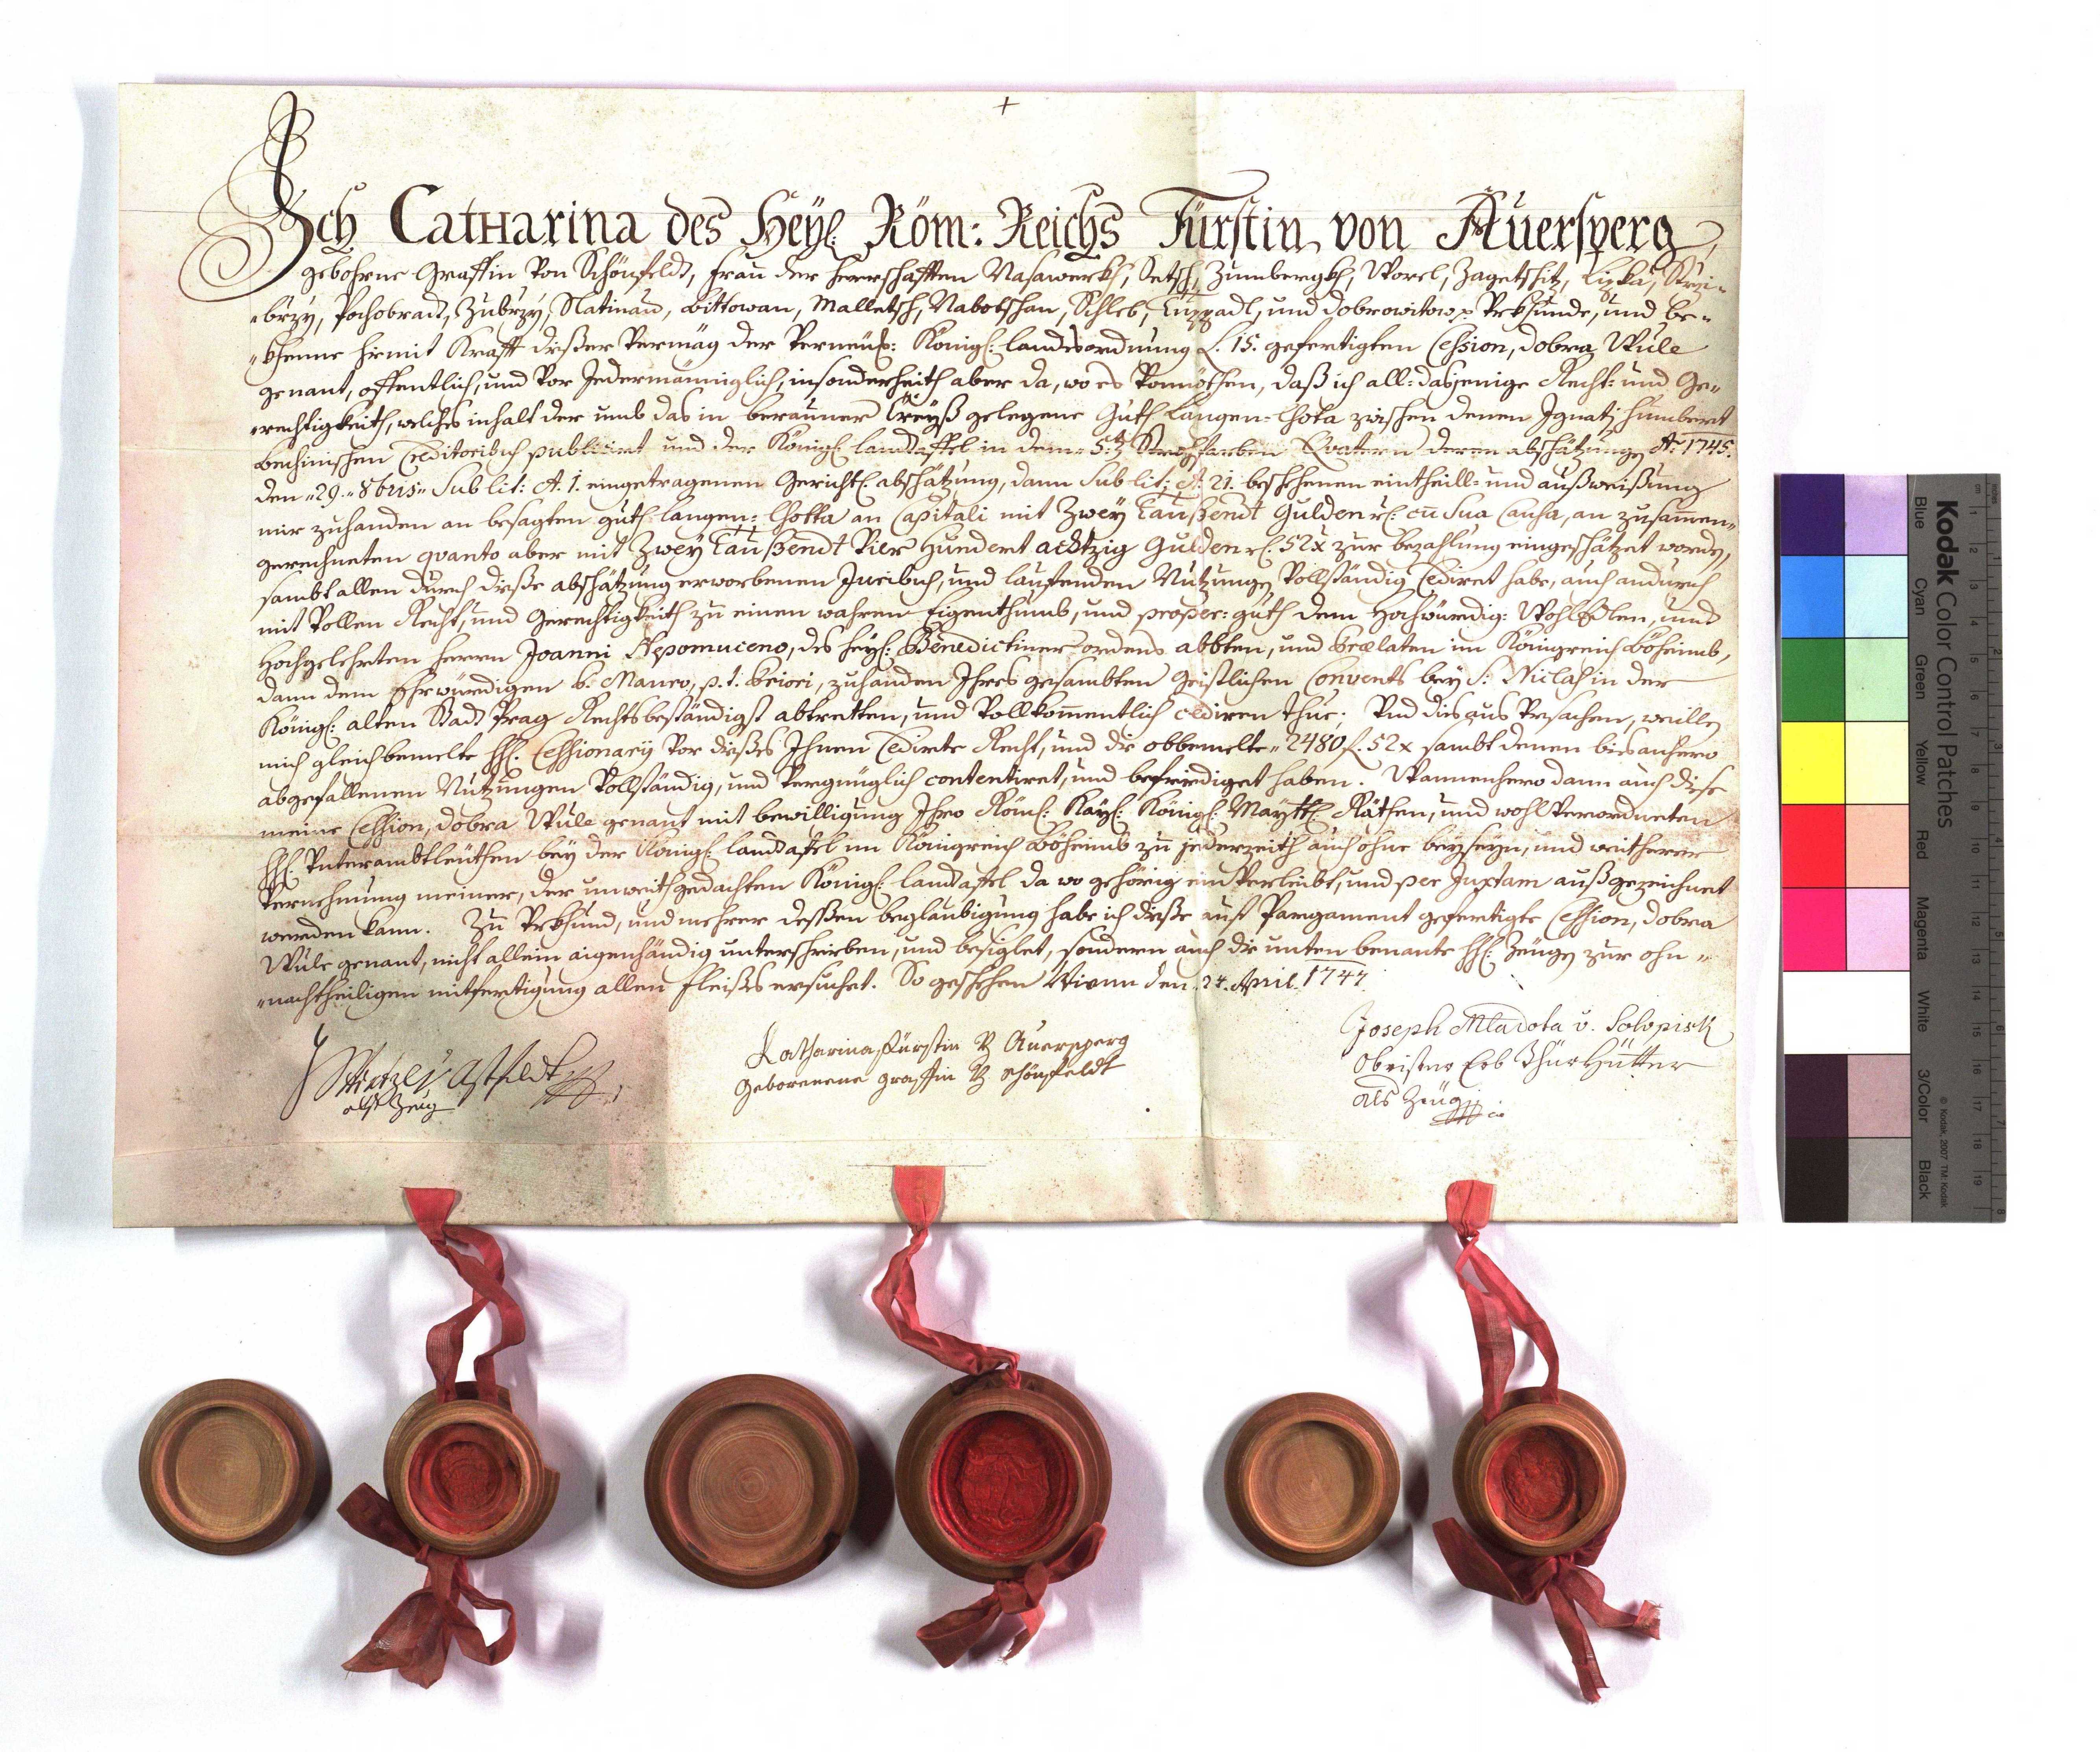 Ich Catharina des Heyl: Röm: Reichs Fürstin von Auersperg,
gebohrne Gräffin von Schönfeldt, Frau der Herrschafften Nasawerkh, Setsch, Zumbergkh, Worel, Zagetschitz, Lipka, Stri-
-brzy, Pochobrad, Zubrzy, Slatinau, Bittowan, Malletsch, Nabotschan, Schleb, Tuppadl, und Dobrowitow Vrkhunde, und be-
-khenne hiemit Krafft dießer vermög der Verneüe: Königl: Landesordnung L. 15. gefertigten Cession, dobra Wule
genant, offentlich, und vor Jedermänniglich, insonderheith aber da, wo es vonnöthen, daß ich all-dasjenige Recht- und Ge-
-rechtigkeith, welches inhalt der umb das in Berauner Creyß gelegene Guth Langen-Lhota zwischen denen Ignatz Humbert
Bechinischen Creditoribus publicirt und der Königl: Landtaffel in dem 5:t Strohfarben Quatern deren abschätzungen Ao 1745.
den 29. 8bris Sub lit: A. 1. eingetragenen Gerichtl: abschätzung, dann Sub lit: A. 21. beschehenen eintheill- und außweißung
mir zuhanden an besagten guth Langen-Lhotta an Capitali mit Zwey Taußendt Gulden rh: cu Sua Causa, an zusammen
gerechneten quanto aber mit Zwey Taußendt Vier Hundert achtzig Gulden rh: 52 x zur bezahlung eingeschätzet worden,
sambt allen durch dieße abschätzung erworbenen Juribus, und lauffenden Nutzungen Vollständig Cediret habe, auch andurch
mit Vollen Recht, und Gerechtigkeith zu einen wahren Eigenthumb, und proper-guth dem Hochwürdig: WohlEdlen, und
Hochgelehrten Herrn Joanni Nepomuceno, des Heyl: Benedictiner Ordens abbten, und Prælaten im Königreich Böheimb,
dann dem Ehrwürdigen P. Mauro, p. t. Priori, zuhanden Ihres gesambten Geistlichen Convents bey S: Niclas in der
Königl: alten Stadt Prag Rechtsbeständigst abtretten, und Vollkommentlich cediren thue; Und dies aus Ursachen, weillen
mich gleich bemelte HH: Cessionarij vor dießes Ihnen Cedirte Recht, und die obbemelte 2480 f. 52 x sambt denen bies anhero
abgefallenen Nutzungen Vollständig, und Vergnüglich contentiret, und befriediget haben. Wannenhero dann auch diese
meine Cession, dobra Wule genant mit bewilligung Ihro Röml: Kayl: Königl: Maytt: Räthen, und wohl Verordneten
HH: Unterambtleuthen bey der Königl: Landtaffel im Königreich Böheimb zu jederzeith auch ohne beyseyn, und weitherer
Vernehmung meiner, der unweithgedachten Königl: Landtaffel da wo gehörig einVerleibt, und per Juxtam außgezeichnet
werden kann. Zu Vrkhund, und mehrer deßen beglaubigung habe ich dieße auf Pargament gefertigte Cession, dobra
Wule genant, nicht allein aigenhändig unterschrieben, und besiglet, sondern auch die unten benante HH: Zeugen zur ohn-
-nachtheiligen mitfertigung allen fleißes ersuchet. So geschehen Wienn den 24. April 1747.
Wentzel Astfeldt
alß Zeug
Katharina Fürstin v Auersperg
geborenene gräffin v Schönfeldt
Joseph Mladota v. Solopisk
Obrister Erb Thür Hütter
als Zeüg
Kodak Color Control Patches
© Kodak, 2007 TM: Kodak
Blue Cyan Green Yellow Red Magenta White 3/Color Black
cm 1 2 3 4 5 6 7 8 9 10 11 12 13 14 15 16 17 18 19
inches 1 2 3 4 5 6 7 8